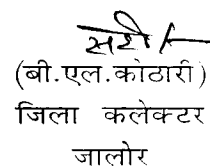 सही/-
(बी.एल.कोठारी)
जिला कलेक्टर
जालोर